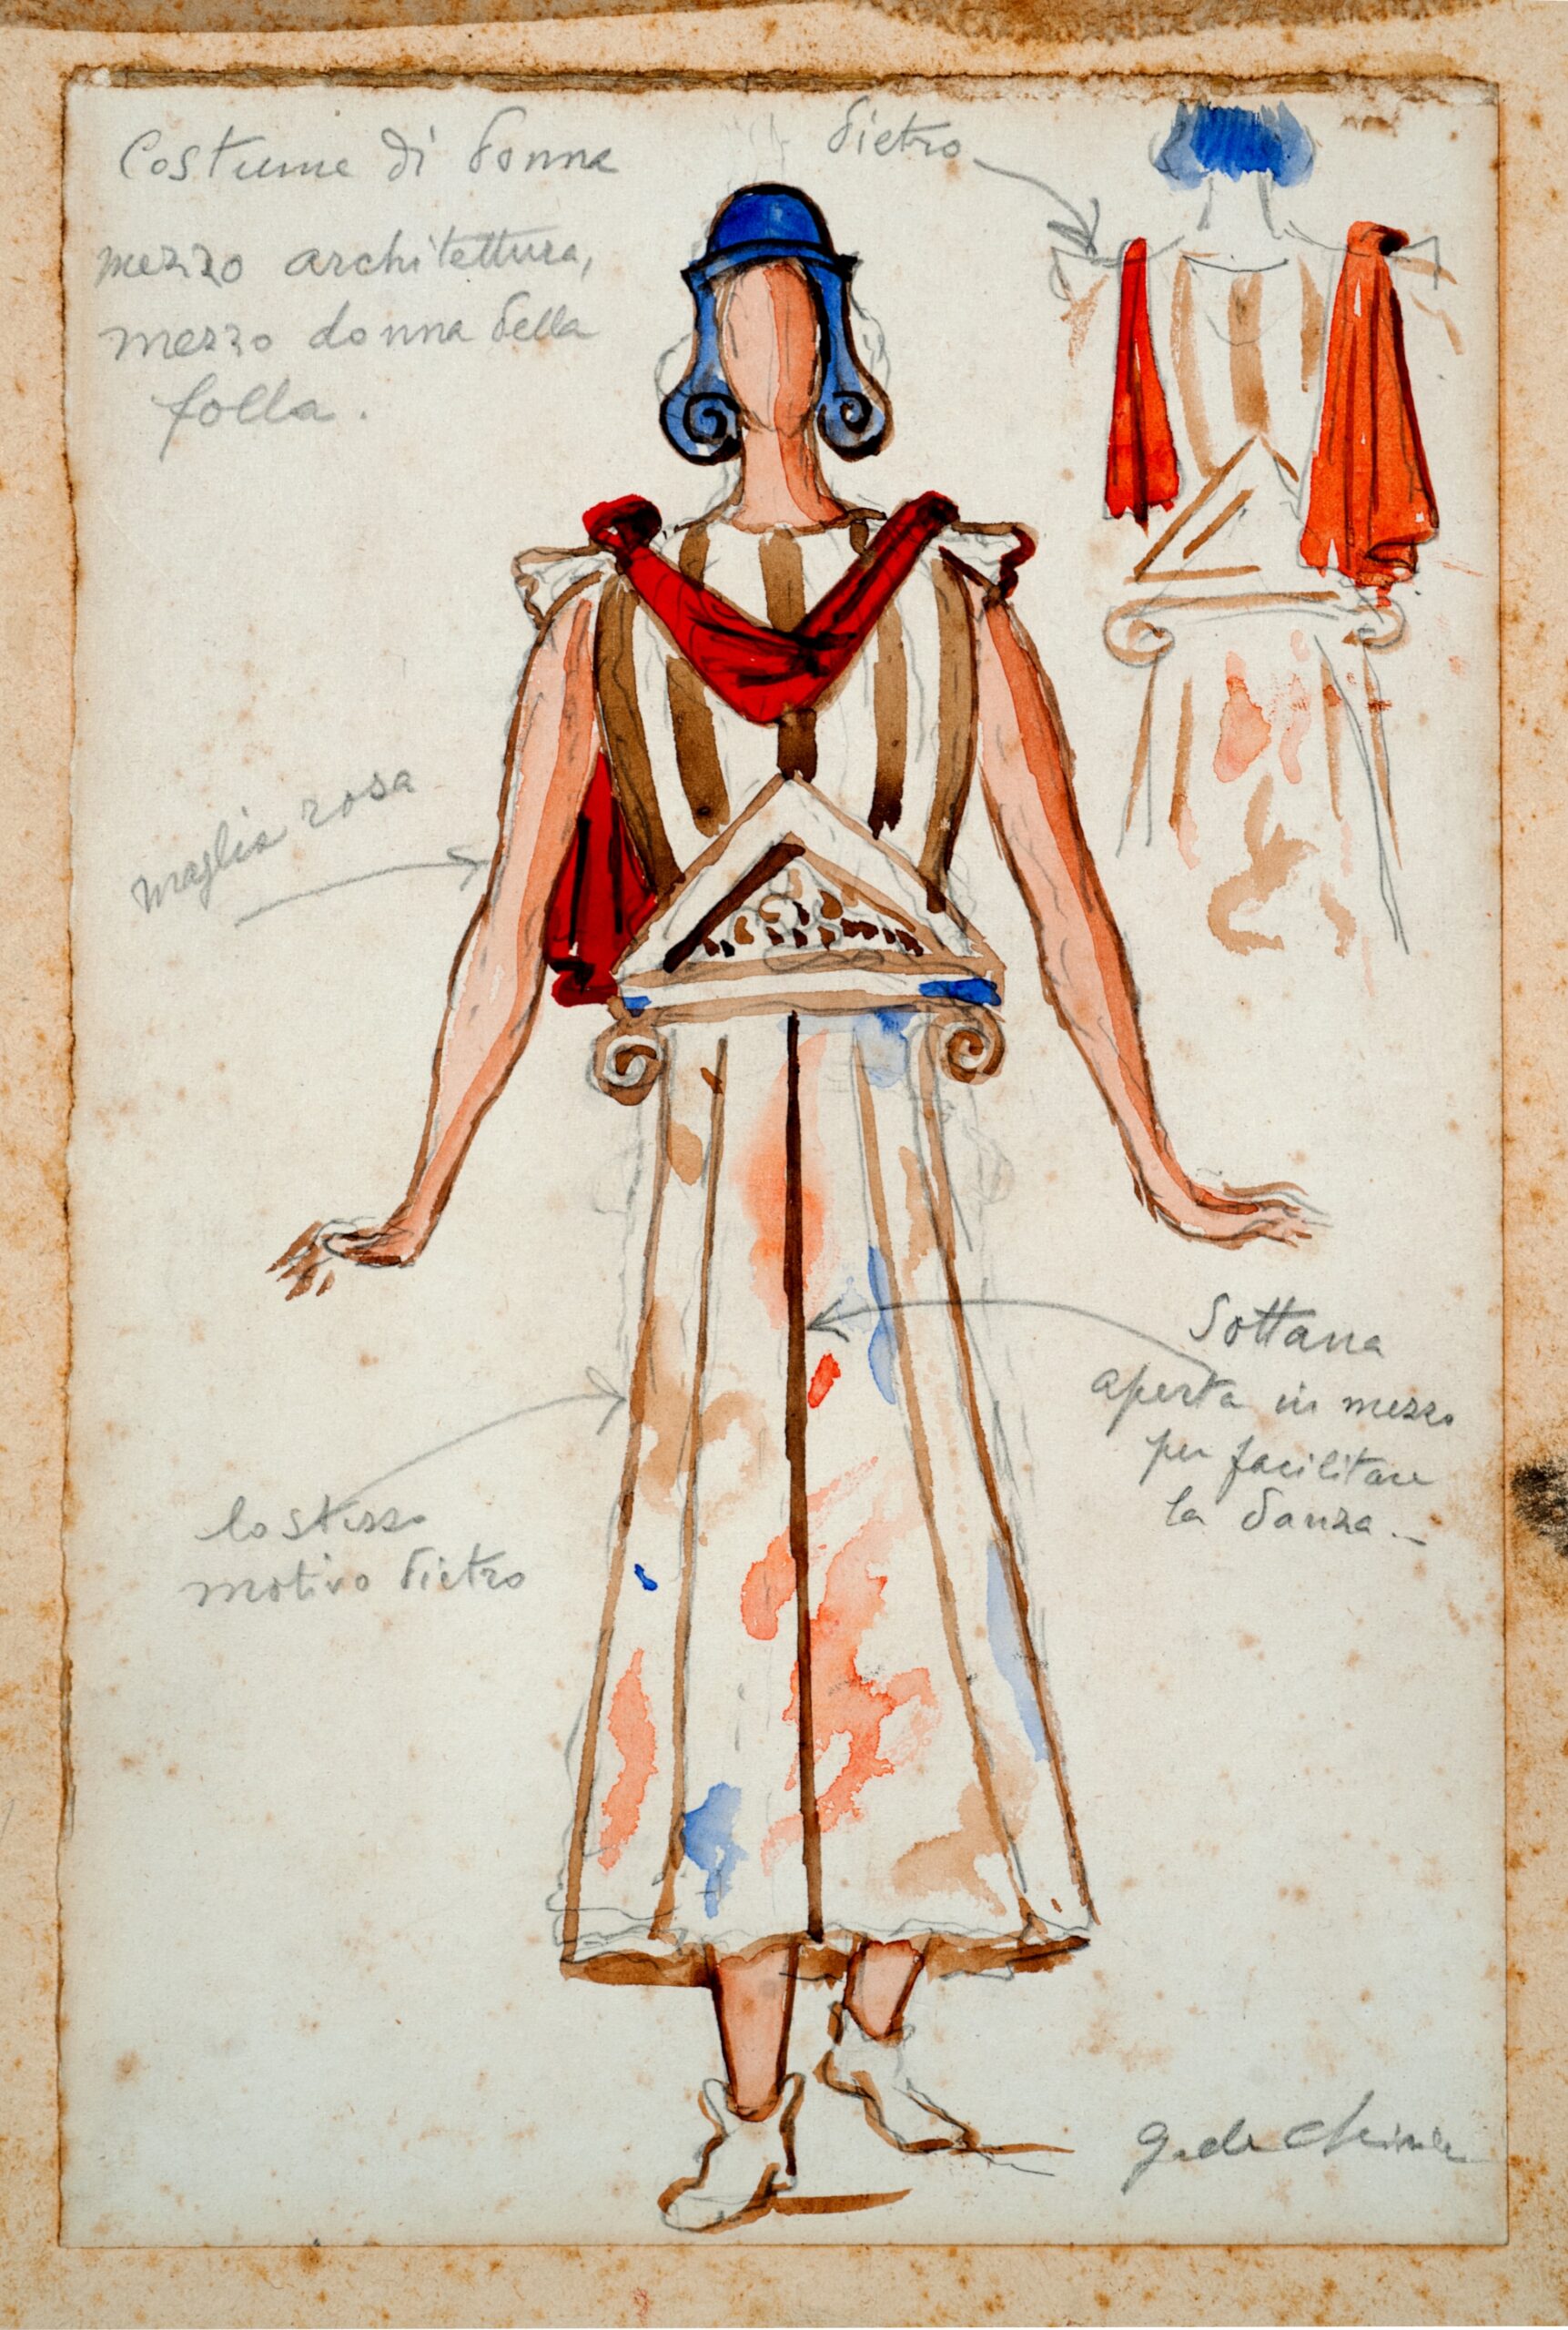 Costume di donna
mezzo architettura,
mezzo donna della
folla.
dietro
maglia rosa
Sottana
aperta in mezzo
per facilitare
la danza.
lo stesso
motivo dietro
G. de Chirico